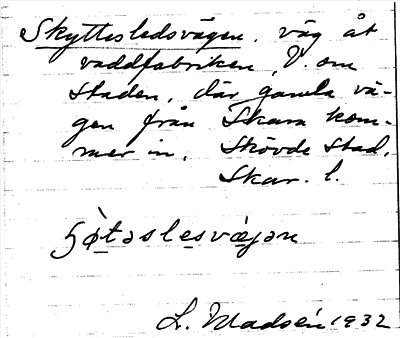 Skyttesledsvägen. väg åt
vaddfabriken, V. om
staden, där gamla vä-
gen från Skara kom-
mer in. Skövde stad.
Skar. l.
L. Madsén 1932